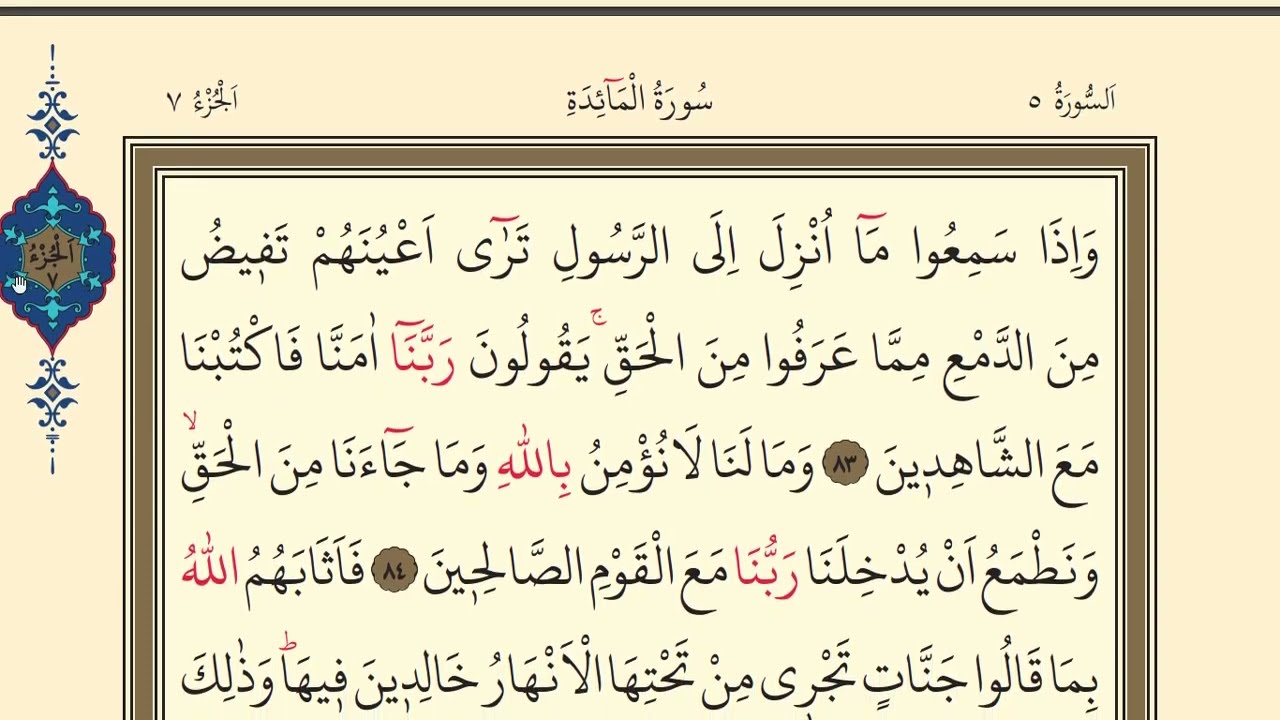 اَلسُّورَةُ ٥
سُورَةُ الْمَٓائِدَةِ
اَلْجُزْءُ ٧
اَلْجُزْءُ
٧
وَاِذَا سَمِعُوا مَٓا اُنْزِلَ اِلَى الرَّسُولِ تَرٰٓى اَعْيُنَهُمْ تَف۪يضُ
مِنَ الدَّمْعِ مِمَّا عَرَفُوا مِنَ الْحَقِّۚ يَقُولُونَ رَبَّنَٓا اٰمَنَّا فَاكْتُبْنَا
مَعَ الشَّاهِد۪ينَ ٨٣ وَمَا لَنَا لَا نُؤْمِنُ بِاللّٰهِ وَمَا جَٓاءَنَا مِنَ الْحَقِّۙ
وَنَطْمَعُ اَنْ يُدْخِلَنَا رَبُّنَا مَعَ الْقَوْمِ الصَّالِح۪ينَ ٨٤ فَاَثَابَهُمُ اللّٰهُ
بِمَا قَالُوا جَنَّاتٍ تَجْر۪ى مِنْ تَحْتِهَا الْاَنْهَارُ خَالِد۪ينَ ف۪يهَاۜ وَذٰلِكَ